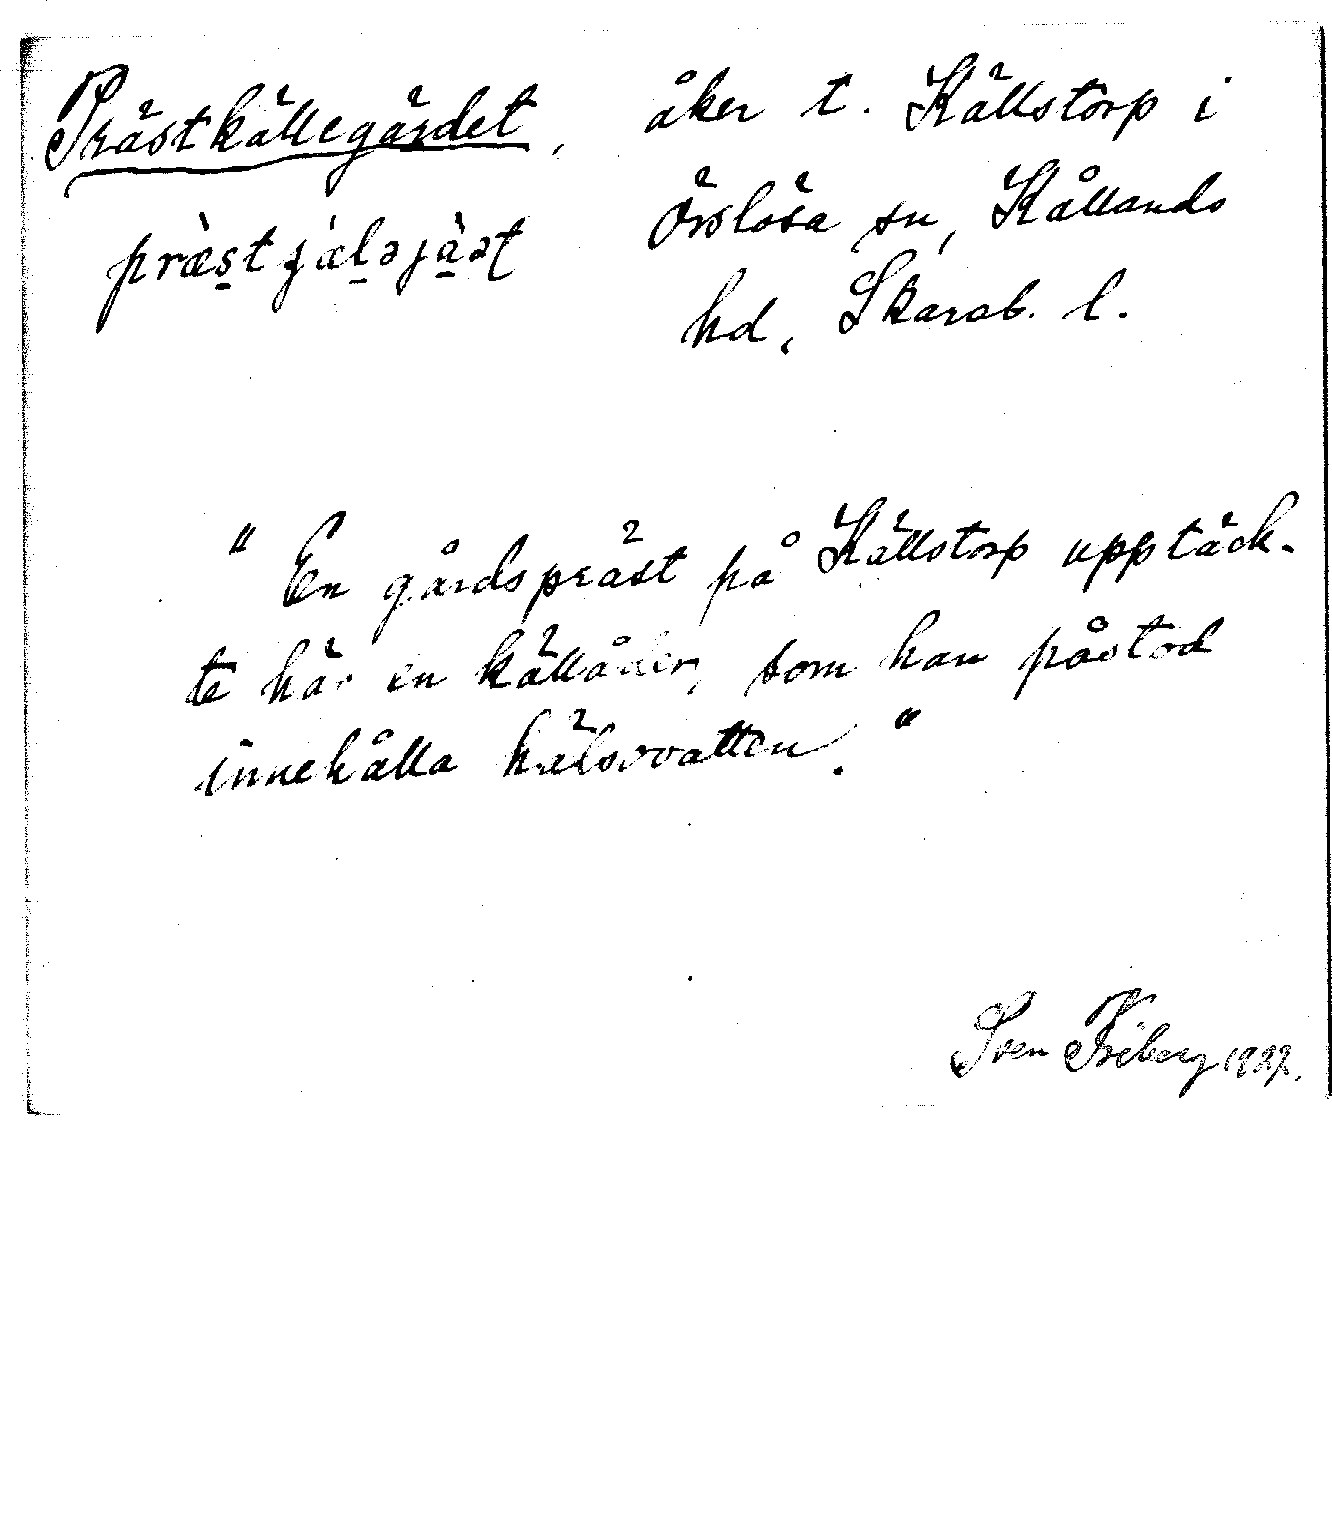 Prästkällegärdet, åker t. Källstorp i
Örslösa sn, Kållands
hd, Skarab. l.
"En gårdspräst på Källstorp upptäck-
te här en källåder, som han påstod
innehålla hälsovatten."
Sven Friberg 1927.